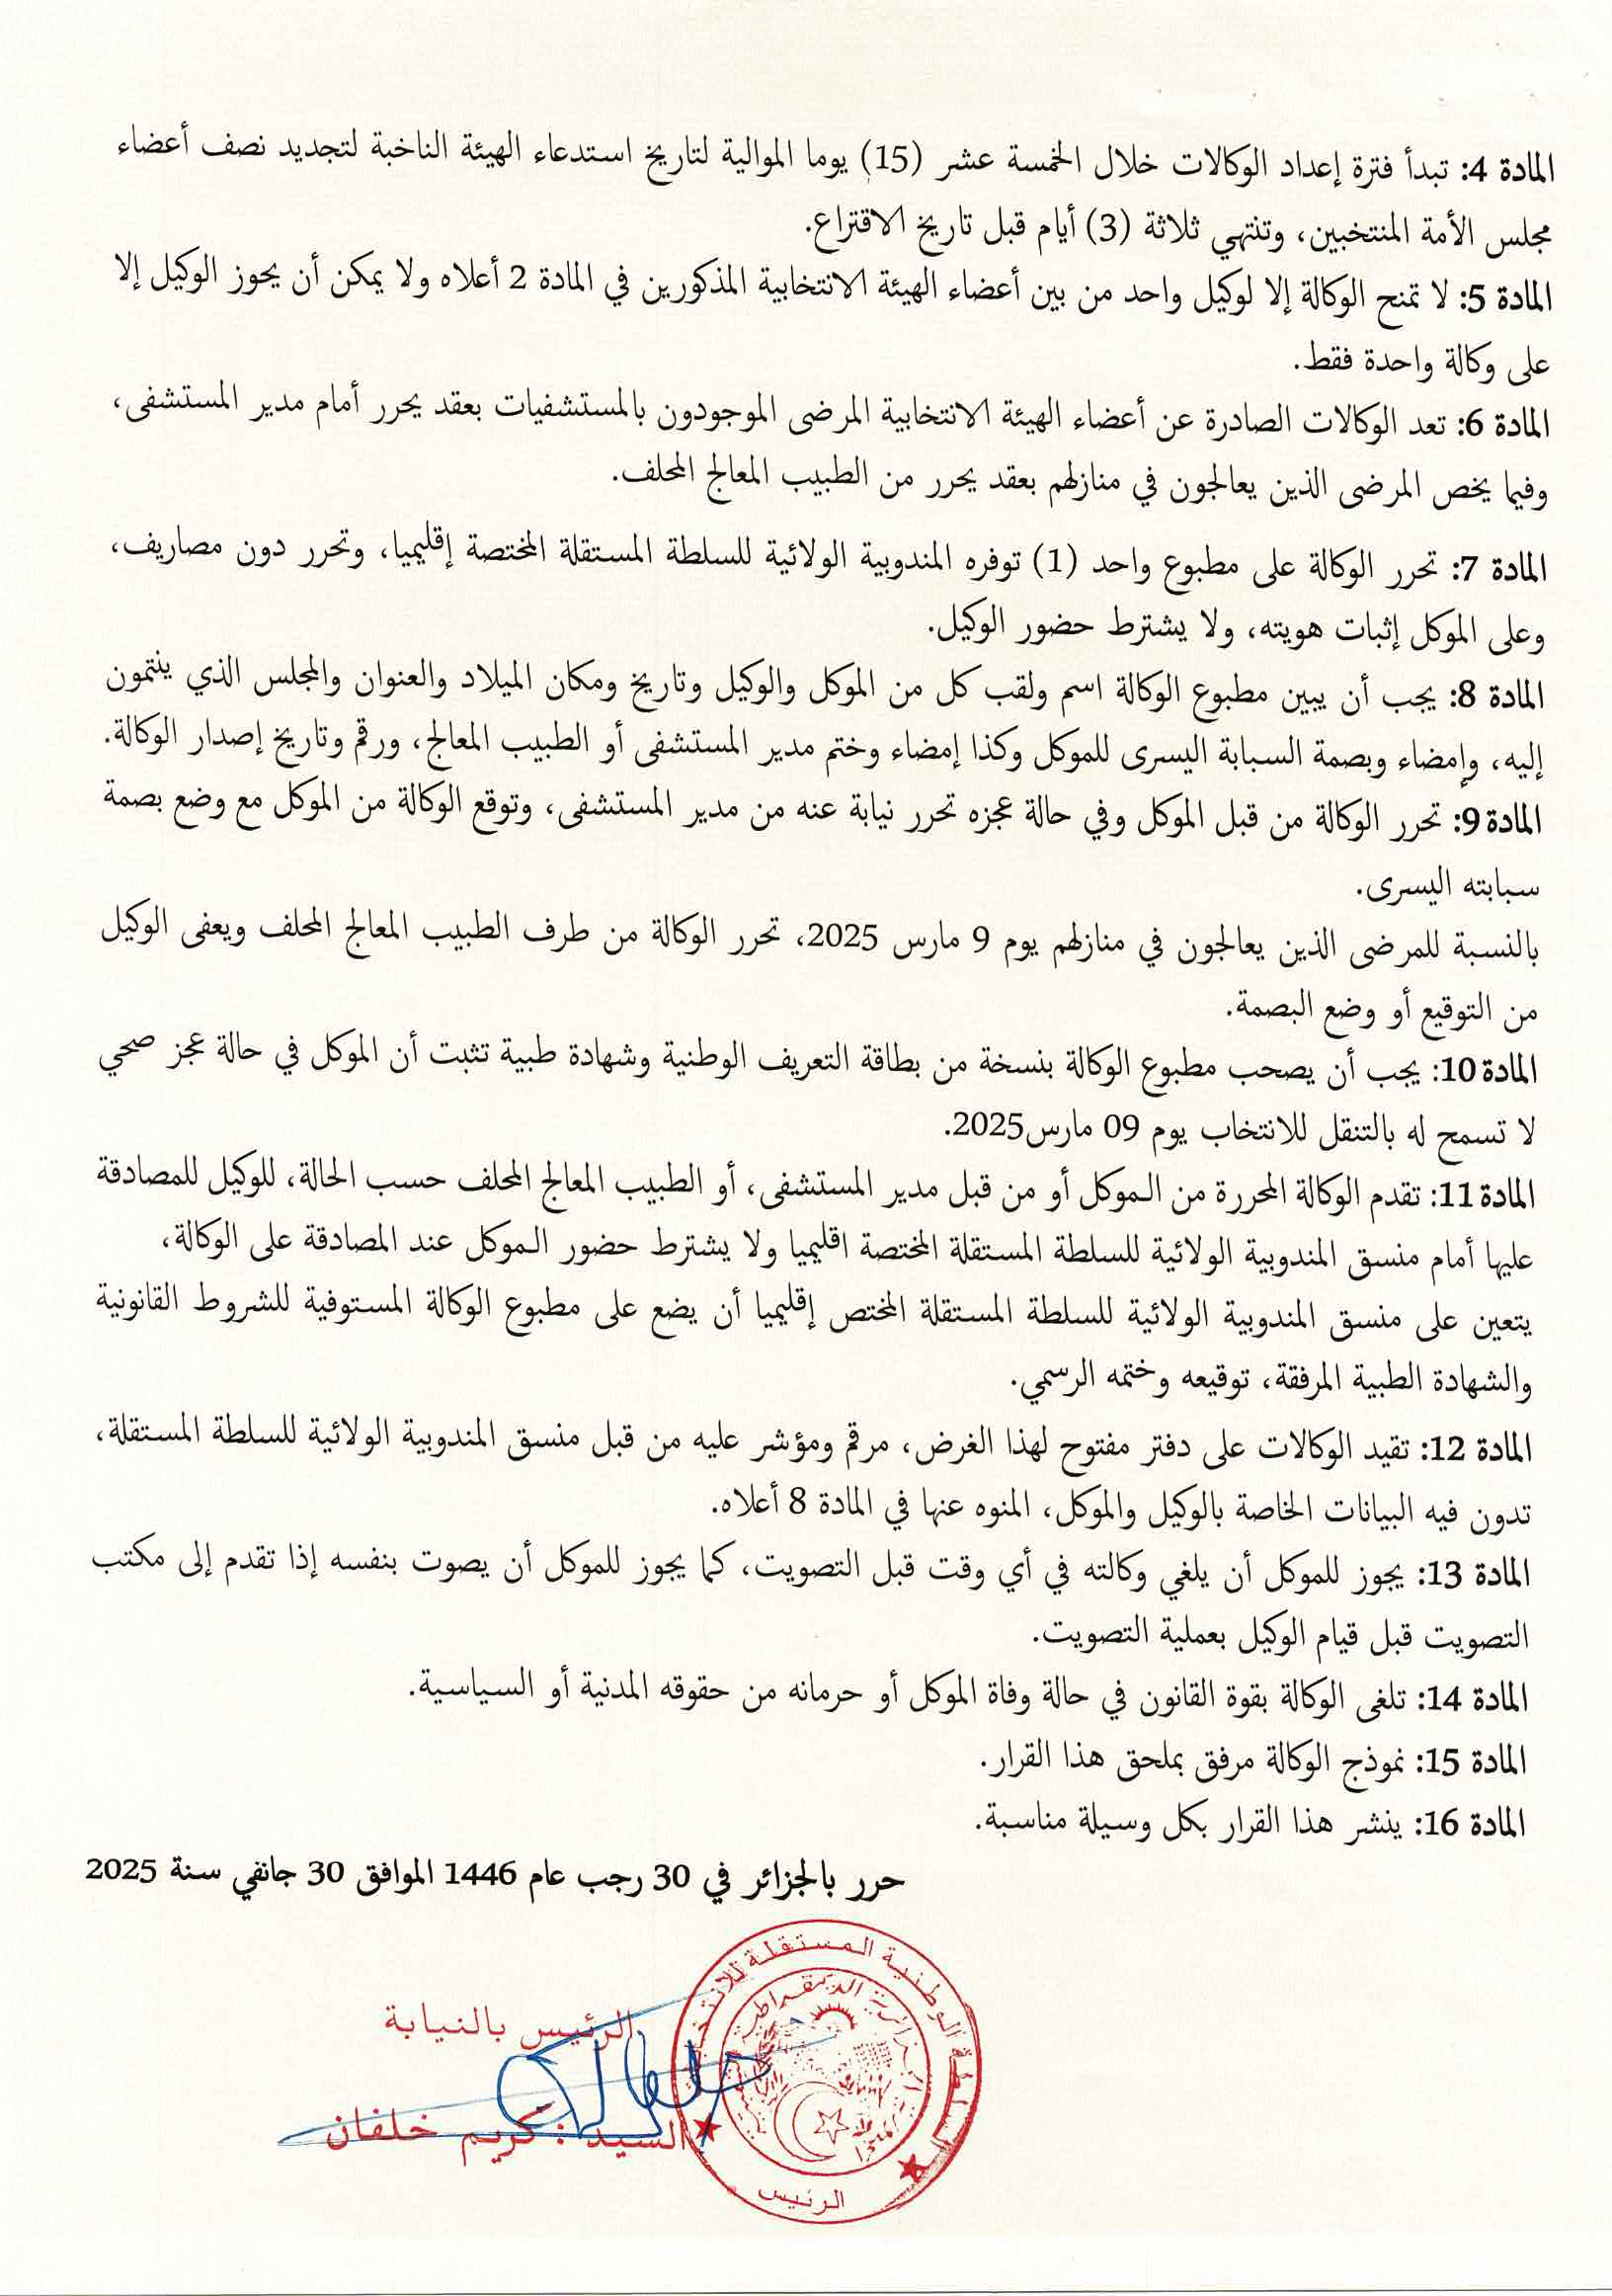 المادة 4: تبدأ فترة إعداد الوكالات خلال الخمسة عشر (15) يوما الموالية لتاريخ استدعاء الهيئة الناخبة لتجديد نصف أعضاء
مجلس الأمة المنتخبين، وتنتهي ثلاثة (3) أيام قبل تاريخ الاقتراع.
المادة 5: لا تمنح الوكالة إلا لوكيل واحد من بين أعضاء الهيئة الانتخابية المذكورين في المادة 2 أعلاه ولا يمكن أن يحوز الوكيل إلا
على وكالة واحدة فقط.
المادة 6: تعد الوكالات الصادرة عن أعضاء الهيئة الانتخابية المرضى الموجودون بالمستشفيات بعقد يحرر أمام مدير المستشفى،
وفيما يخص المرضى الذين يعالجون في منازلهم بعقد يحرر من الطبيب المعالج المحلف.
المادة 7: تحرر الوكالة على مطبوع واحد (1) توفره المندوبية الولائية للسلطة المستقلة المختصة إقليميا، وتحرر دون مصاريف،
وعلى الموكل إثبات هويته، ولا يشترط حضور الوكيل.
المادة 8: يجب أن يبين مطبوع الوكالة اسم ولقب كل من الموكل والوكيل وتاريخ ومكان الميلاد والعنوان والمجلس الذي ينتمون
إليه، وإمضاء وبصمة السبابة اليسرى للموكل وكذا إمضاء وختم مدير المستشفى أو الطبيب المعالج، ورقم وتاريخ إصدار الوكالة.
المادة 9: تحرر الوكالة من قبل الموكل وفي حالة عجزه تحرر نيابة عنه من مدير المستشفى، وتوقع الوكالة من الموكل مع وضع بصمة
سبابته اليسرى.
بالنسبة للمرضى الذين يعالجون في منازلهم يوم 9 مارس 2025، تحرر الوكالة من طرف الطبيب المعالج المحلف ويعفى الوكيل
من التوقيع أو وضع البصمة.
المادة 10: يجب أن يصحب مطبوع الوكالة بنسخة من بطاقة التعريف الوطنية وشهادة طبية تثبت أن الموكل في حالة عجز صحي
لا تسمح له بالتنقل للانتخاب يوم 09 مارس2025.
المادة 11: تقدم الوكالة المحررة من الموكل أو من قبل مدير المستشفى، أو الطبيب المعالج المحلف حسب الحالة، للوكيل للمصادقة
عليها أمام منسق المندوبية الولائية للسلطة المستقلة المختصة اقليميا ولا يشترط حضور الموكل عند المصادقة على الوكالة،
يتعين على منسق المندوبية الولائية للسلطة المستقلة المختص إقليميا أن يضع على مطبوع الوكالة المستوفية للشروط القانونية
والشهادة الطبية المرفقة، توقيعه وختمه الرسمي.
المادة 12: تقيد الوكالات على دفتر مفتوح لهذا الغرض، مرقم ومؤشر عليه من قبل منسق المندوبية الولائية للسلطة المستقلة،
تدون فيه البيانات الخاصة بالوكيل والموكل، المنوه عنها في المادة 8 أعلاه.
المادة 13: يجوز للموكل أن يلغي وكالته في أي وقت قبل التصويت، كما يجوز للموكل أن يصوت بنفسه إذا تقدم إلى مكتب
التصويت قبل قيام الوكيل بعملية التصويت.
المادة 14: تلغى الوكالة بقوة القانون في حالة وفاة الموكل أو حرمانه من حقوقه المدنية أو السياسية.
المادة 15: نموذج الوكالة مرفق بملحق هذا القرار.
المادة 16: ينشر هذا القرار بكل وسيلة مناسبة.
حرر بالجزائر في 30 رجب عام 1446 الموافق 30 جانفي سنة 2025
الرئيس بالنيابة
السيد : كريم خلفان
الوطنية المستقلة للانتخابات
الرئيس